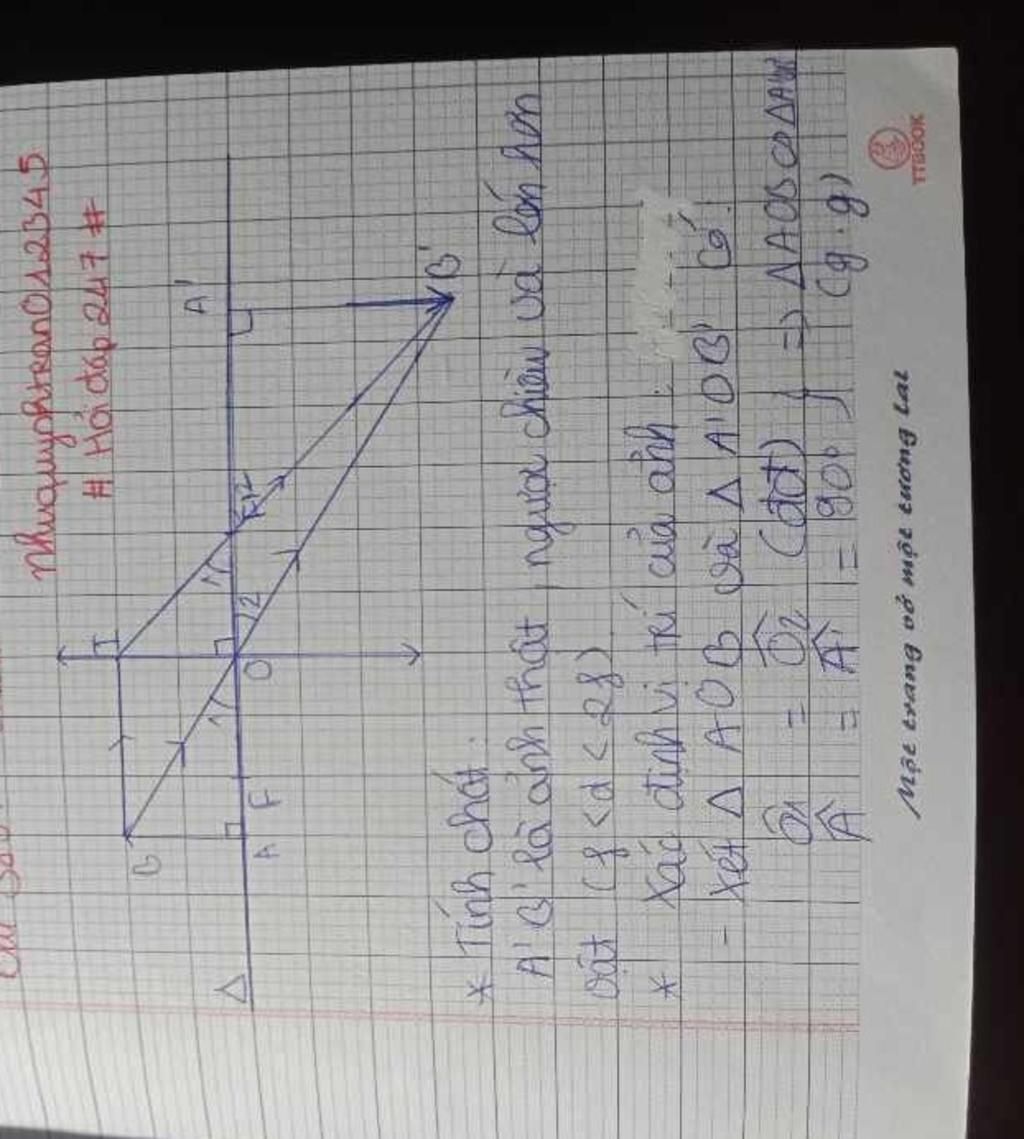 Nhuquynhtran012345
# Hỏi đáp 247 #
B
I
A'
1
1
F'
2
Δ
A
F
O
2
B'
* Tính chất:
A'B' là ảnh thật, ngược chiều và lớn hơn
vật (f < d < 2f)
* Xác định vị trí của ảnh:
- Xét Δ AOB và Δ A'OB' có:
Ô1 = Ô2 (đđ) } => Δ AOB ∽
Â = Â' = 90° (g.g)
Một trang vở một tương lai
TTBOOK